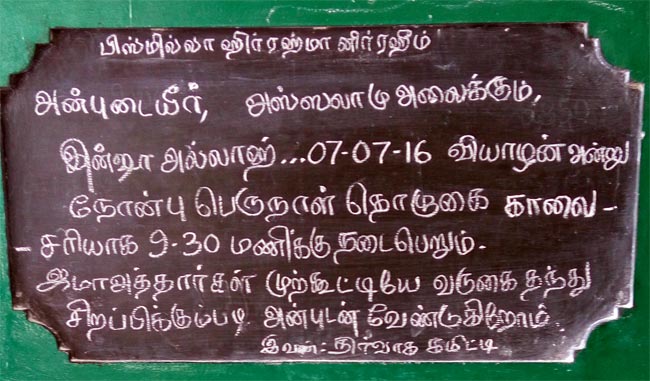 பிஸ்மில்லா ஹிர்ரஹ்மா னிர்ரஹீம்
அன்புடையீர், அஸ்ஸலாமு அலைக்கும்,
இன்ஷா அல்லாஹ்...07-07-16 வியாழன் அன்று
நோன்பு பெருநாள் தொழுகை காலை-
-சரியாக 9-30 மணிக்கு நடைபெறும்.
ஜமாஅத்தார்கள் முற்கூட்டியே வருகை தந்து
சிறப்பிக்கும்படி அன்புடன் வேண்டுகிறோம்.
இவன்:- நிர்வாக கமிட்டி